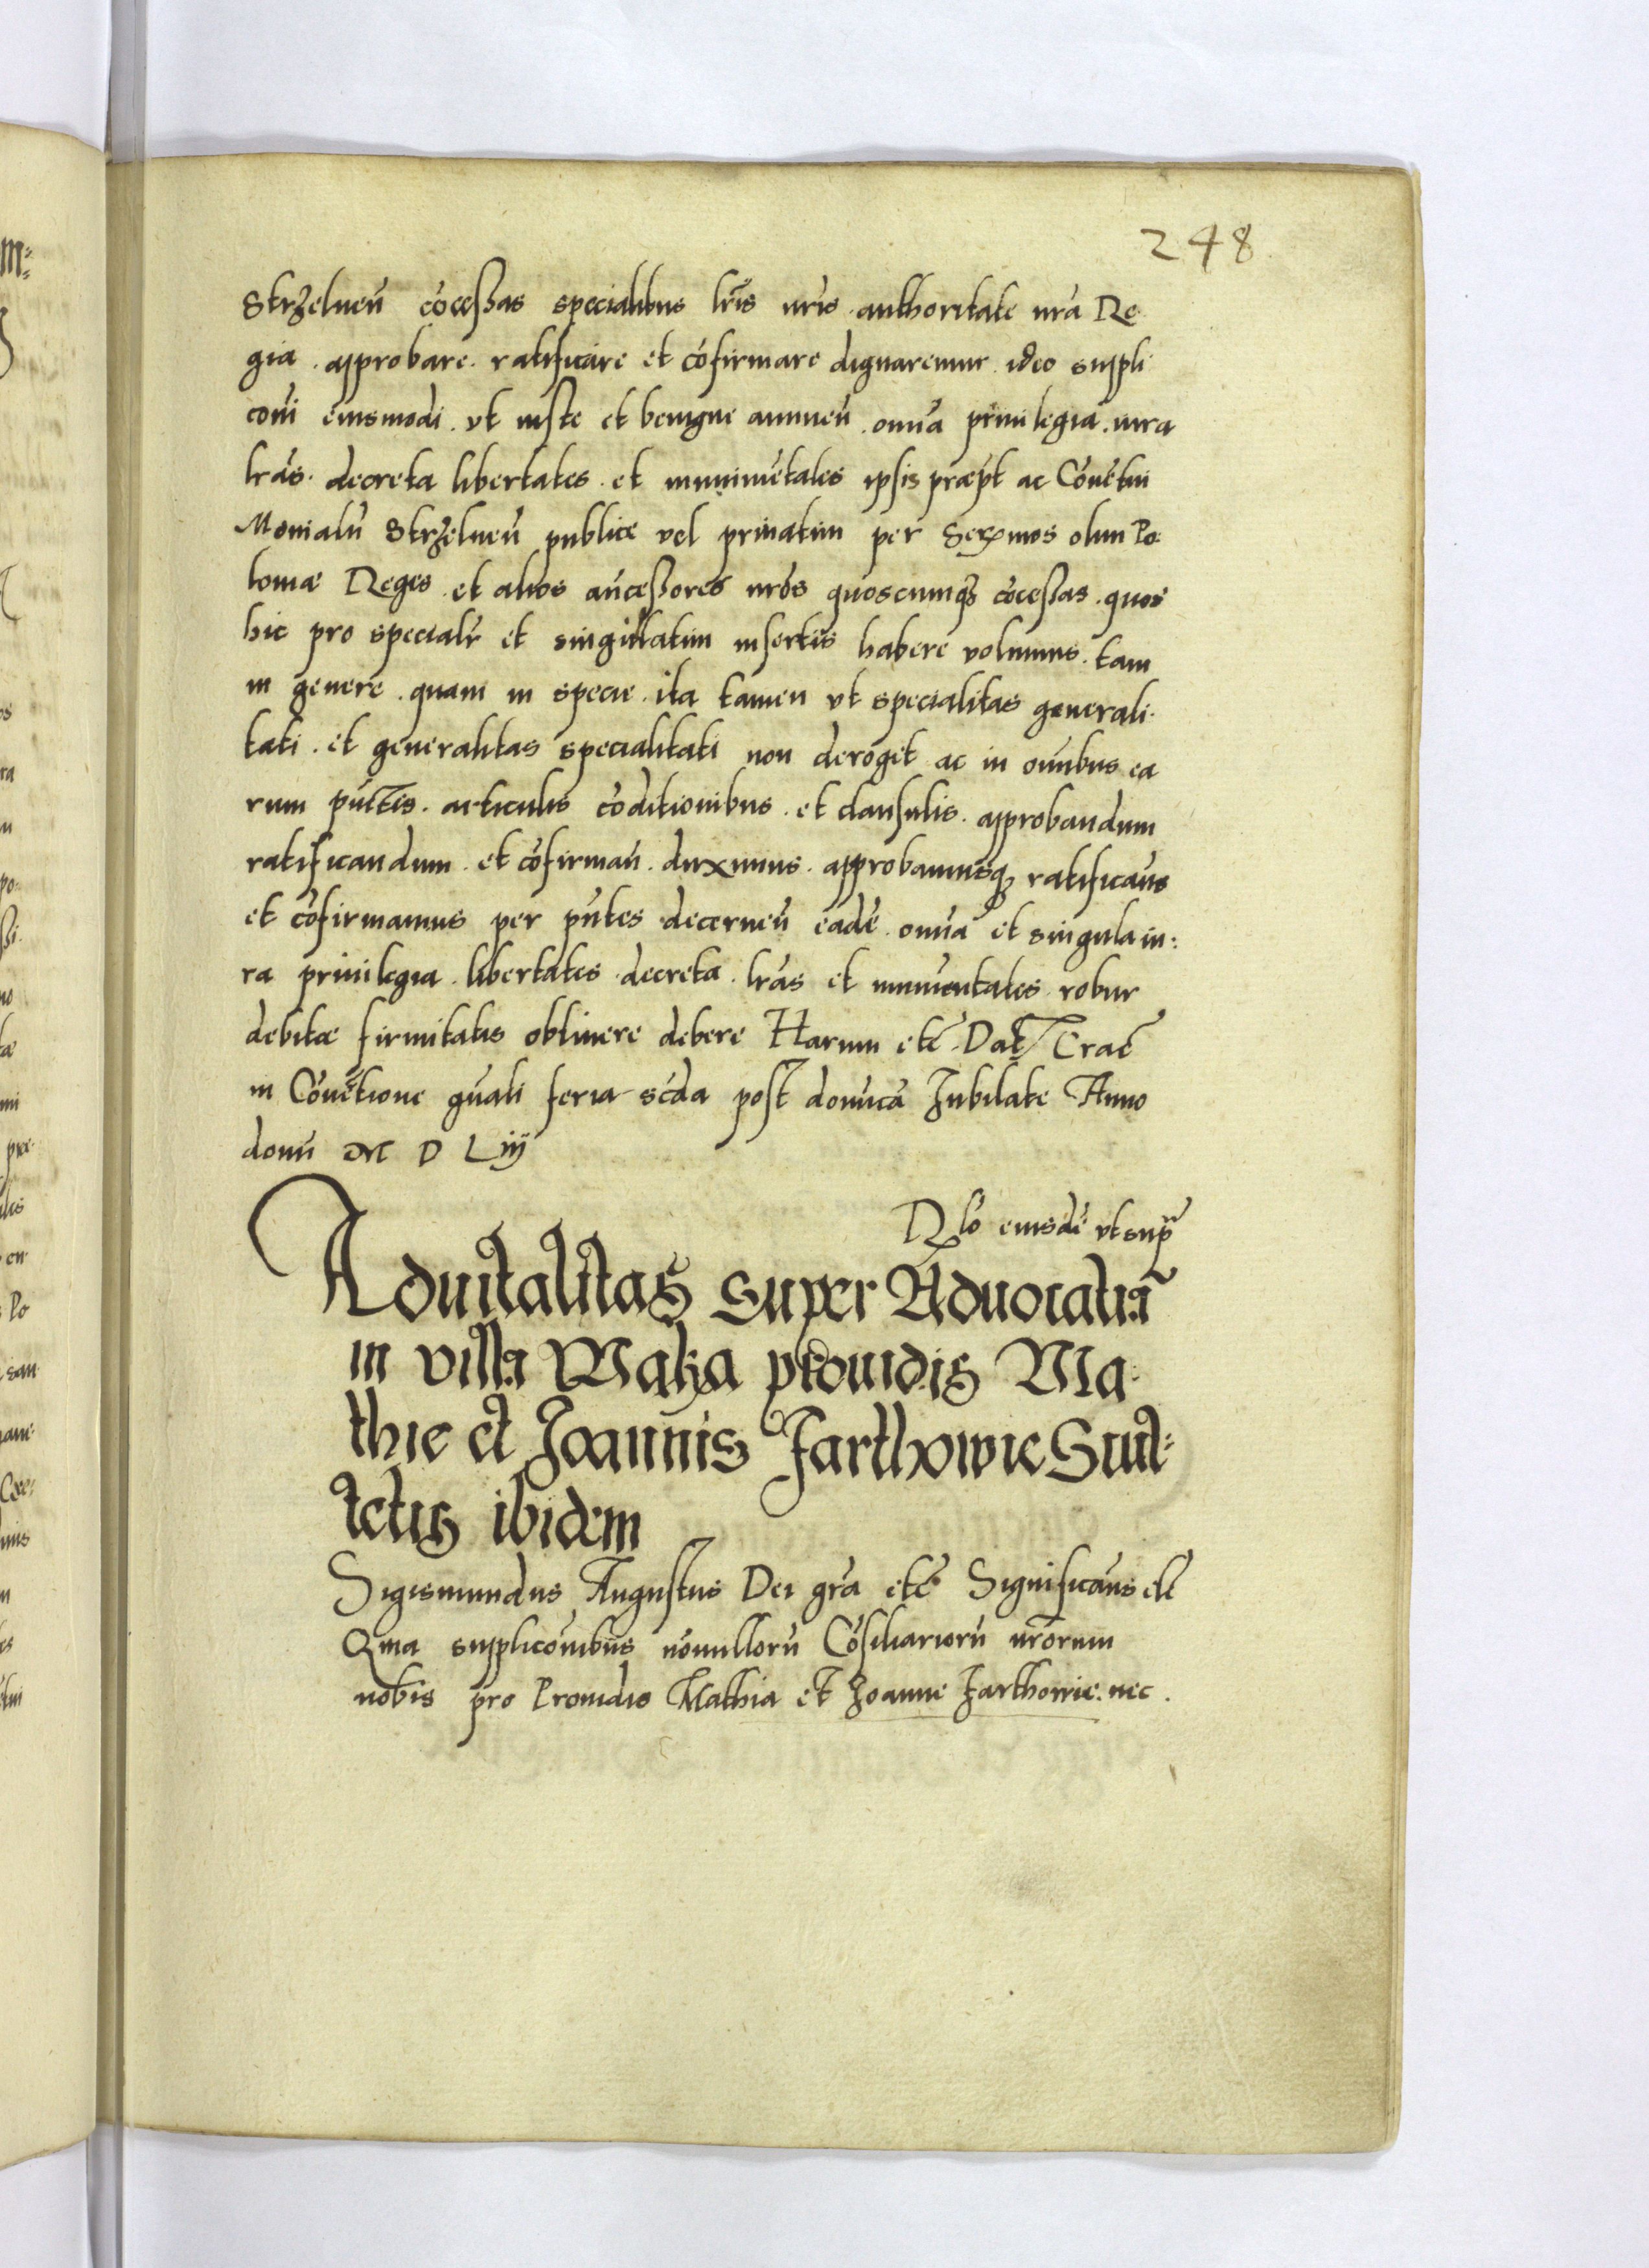 248
Strzelneñ cõcessas specialibus lr̃is nr̃is authoritate nr̃a Re
gia . approbare . ratificare et cõfirmare dignaremur . ideo suppli
coñi eiusmodi . vt iuste et benigne annueñ . om̃ia priuilegia . iura
lr̃as . decreta libertates . et munimẽtales ipsis præp̃t ac Cõuẽtui
Monialiũ Strzelneñ publice vel priuatim per Serx̃mos olim Po
loniæ Reges . et alios añcessores nr̃os quoscumq3 cõcessas . quos
hic pro specialr̃ et singillatim insertis habere volumus . tam
in genere . quam in specie . ita tamen vt specialitas generali
tati . et generalitas specialitati non deroget ac in om̃ibus ea
rum pũctis . articulis cõditionibus . et clausulis . approbandum
ratificandum . et cõfirmañ . duximus . approbamusq3 ratificam̃s
et cõfirmamus per pñtes decerneñ eadẽ . om̃ia et singula iu:
ra priuilegia . libertates . decreta . lr̃as et munimentales . robur
debitæ firmitatis obtinere debere Harum etc̃ . Dat̃ Crac̃
in Cõuẽtione gñali feria sc̃da post dom̃icã Jubilate Anno
domi M D Liij
Rlõ eiusdẽ vt supr̃
Aduitalitas super Aduocatiã
in villa Maka prouidis Ma
thie et Joannis Jarthowie Scul:
tetis ibidem
Sigismundus Augustus Dei gr̃a etc̃ Significam̃s etc̃
Q̃ma supplicoñibus nõnullorũ Cõsiliariorũ nr̃orum
nobis pro Prouidis Mathia et Joanne Jarthowie . nec .